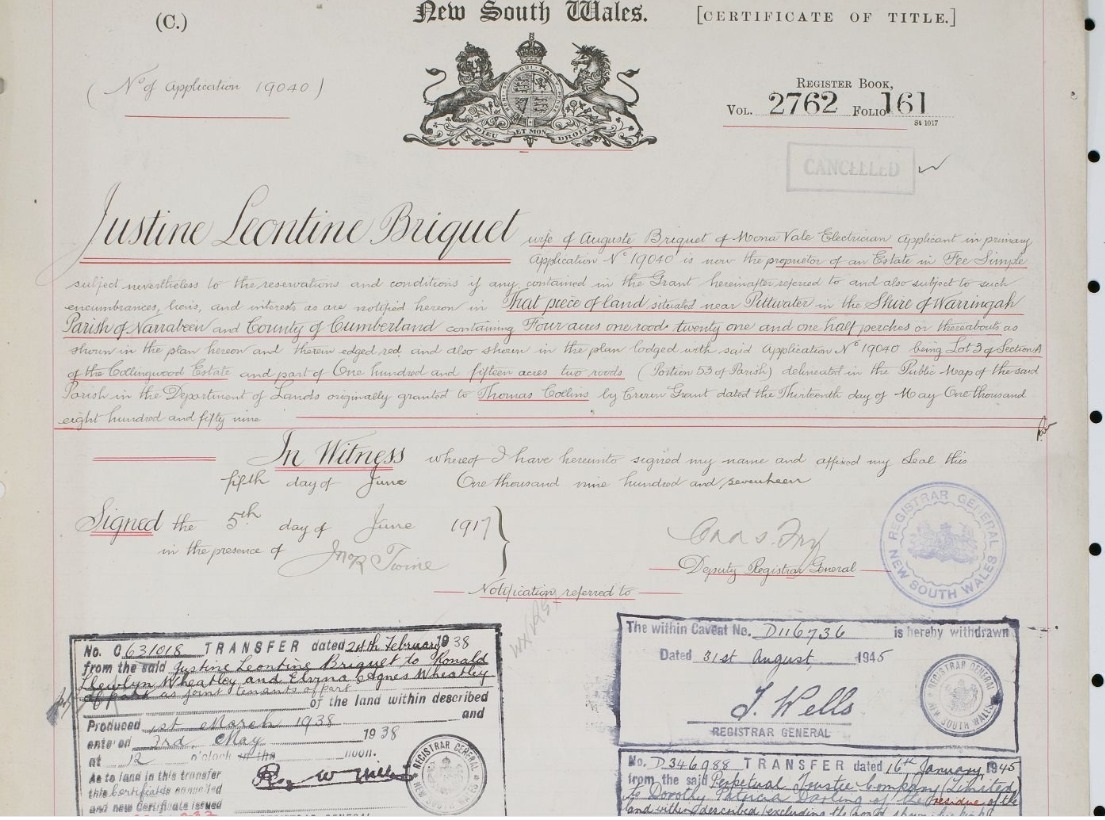 (C.)
New South Wales.
[CERTIFICATE OF TITLE.]
(No of Application 19040)
REGISTER BOOK,
VOL. 2762 FOLIO 161
St 1017
CANCELLED
DIEU ET MON DROIT
Justine Leontine Briquet wife of Auguste Briquet of Mona Vale Electrician Applicant in primary
Application No 19040 is now the proprietor of an Estate in Fee Simple
subject nevertheless to the reservations and conditions if any contained in the Grant hereinafter referred to and also subject to such
encumbrances, liens, and interests as are notified hereon in That piece of land situated near Pittwater in the Shire of Warringah
Parish of Narrabeen and County of Cumberland containing Four acres one rood twenty one and one half perches or thereabouts as
shown in the plan hereon and therein edged red and also shewn in the plan lodged with said Application No 19040 being Lot 3 of Section A
of the Collingwood Estate and part of One hundred and fifteen acres two roods (Portion 53 of Parish) delineated in the Public Map of the said
Parish in the Department of Lands originally granted to Thomas Collins by Crown Grant dated the Thirteenth day of May One thousand
eight hundred and fifty nine
In Witness whereof I have hereunto signed my name and affixed my Seal this
fifth day of June One thousand nine hundred and seventeen
Signed the 5th day of June 1917
in the presence of Jno R Twine
Deputy Registrar General
REGISTRAR GENERAL NEW SOUTH WALES
Notification referred to
No. C631018 TRANSFER dated 24th February 1938
from the said Justine Leontine Briquet to Ronald
Llewlyn Wheatley and Elvina Agnes Wheatley
of part as joint tenants of part
of the land within described
Produced 1st March 1938 and
entered 3rd May 1938
at 12 o'clock in the noon.
As to land in this transfer
this certificate cancelled
and new Certificate issued
REGISTRAR GENERAL NEW SOUTH WALES
The within Caveat No. D116736 is hereby withdrawn
Dated 31st August 1945
J. Wells
REGISTRAR GENERAL
REGISTRAR GENERAL NEW SOUTH WALES
No. D346988 TRANSFER dated 16th January 1945
from the said Perpetual Trustee Company Limited
to Dorothy Patricia Darling of the residue of the
land within described